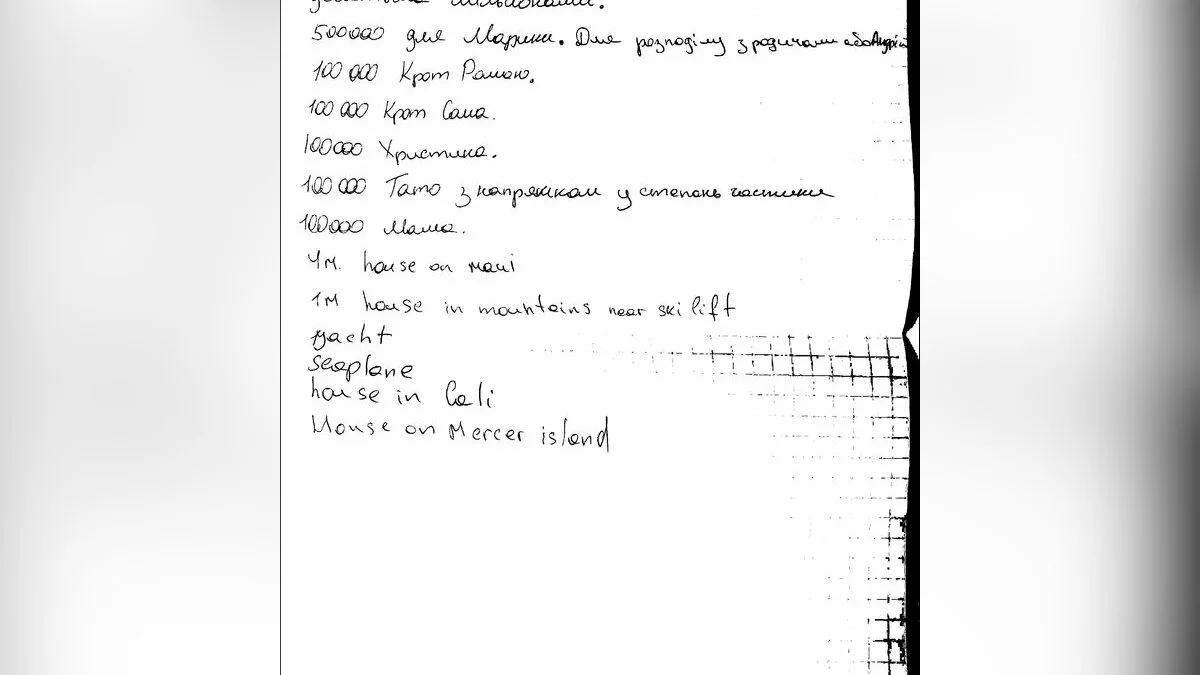 мільйонами.
500000 для Марини. Для розподілу з родичами або Андрій
100 000 Крот Рамою.
100 000 Крот Саша.
100000 Христина.
100 000 Тато з напрямком у степень частики
100000 Мама.
4M. house on maui
1M house in mountains near ski lift
yacht
seaplane
house in Cali
House on Mercer island